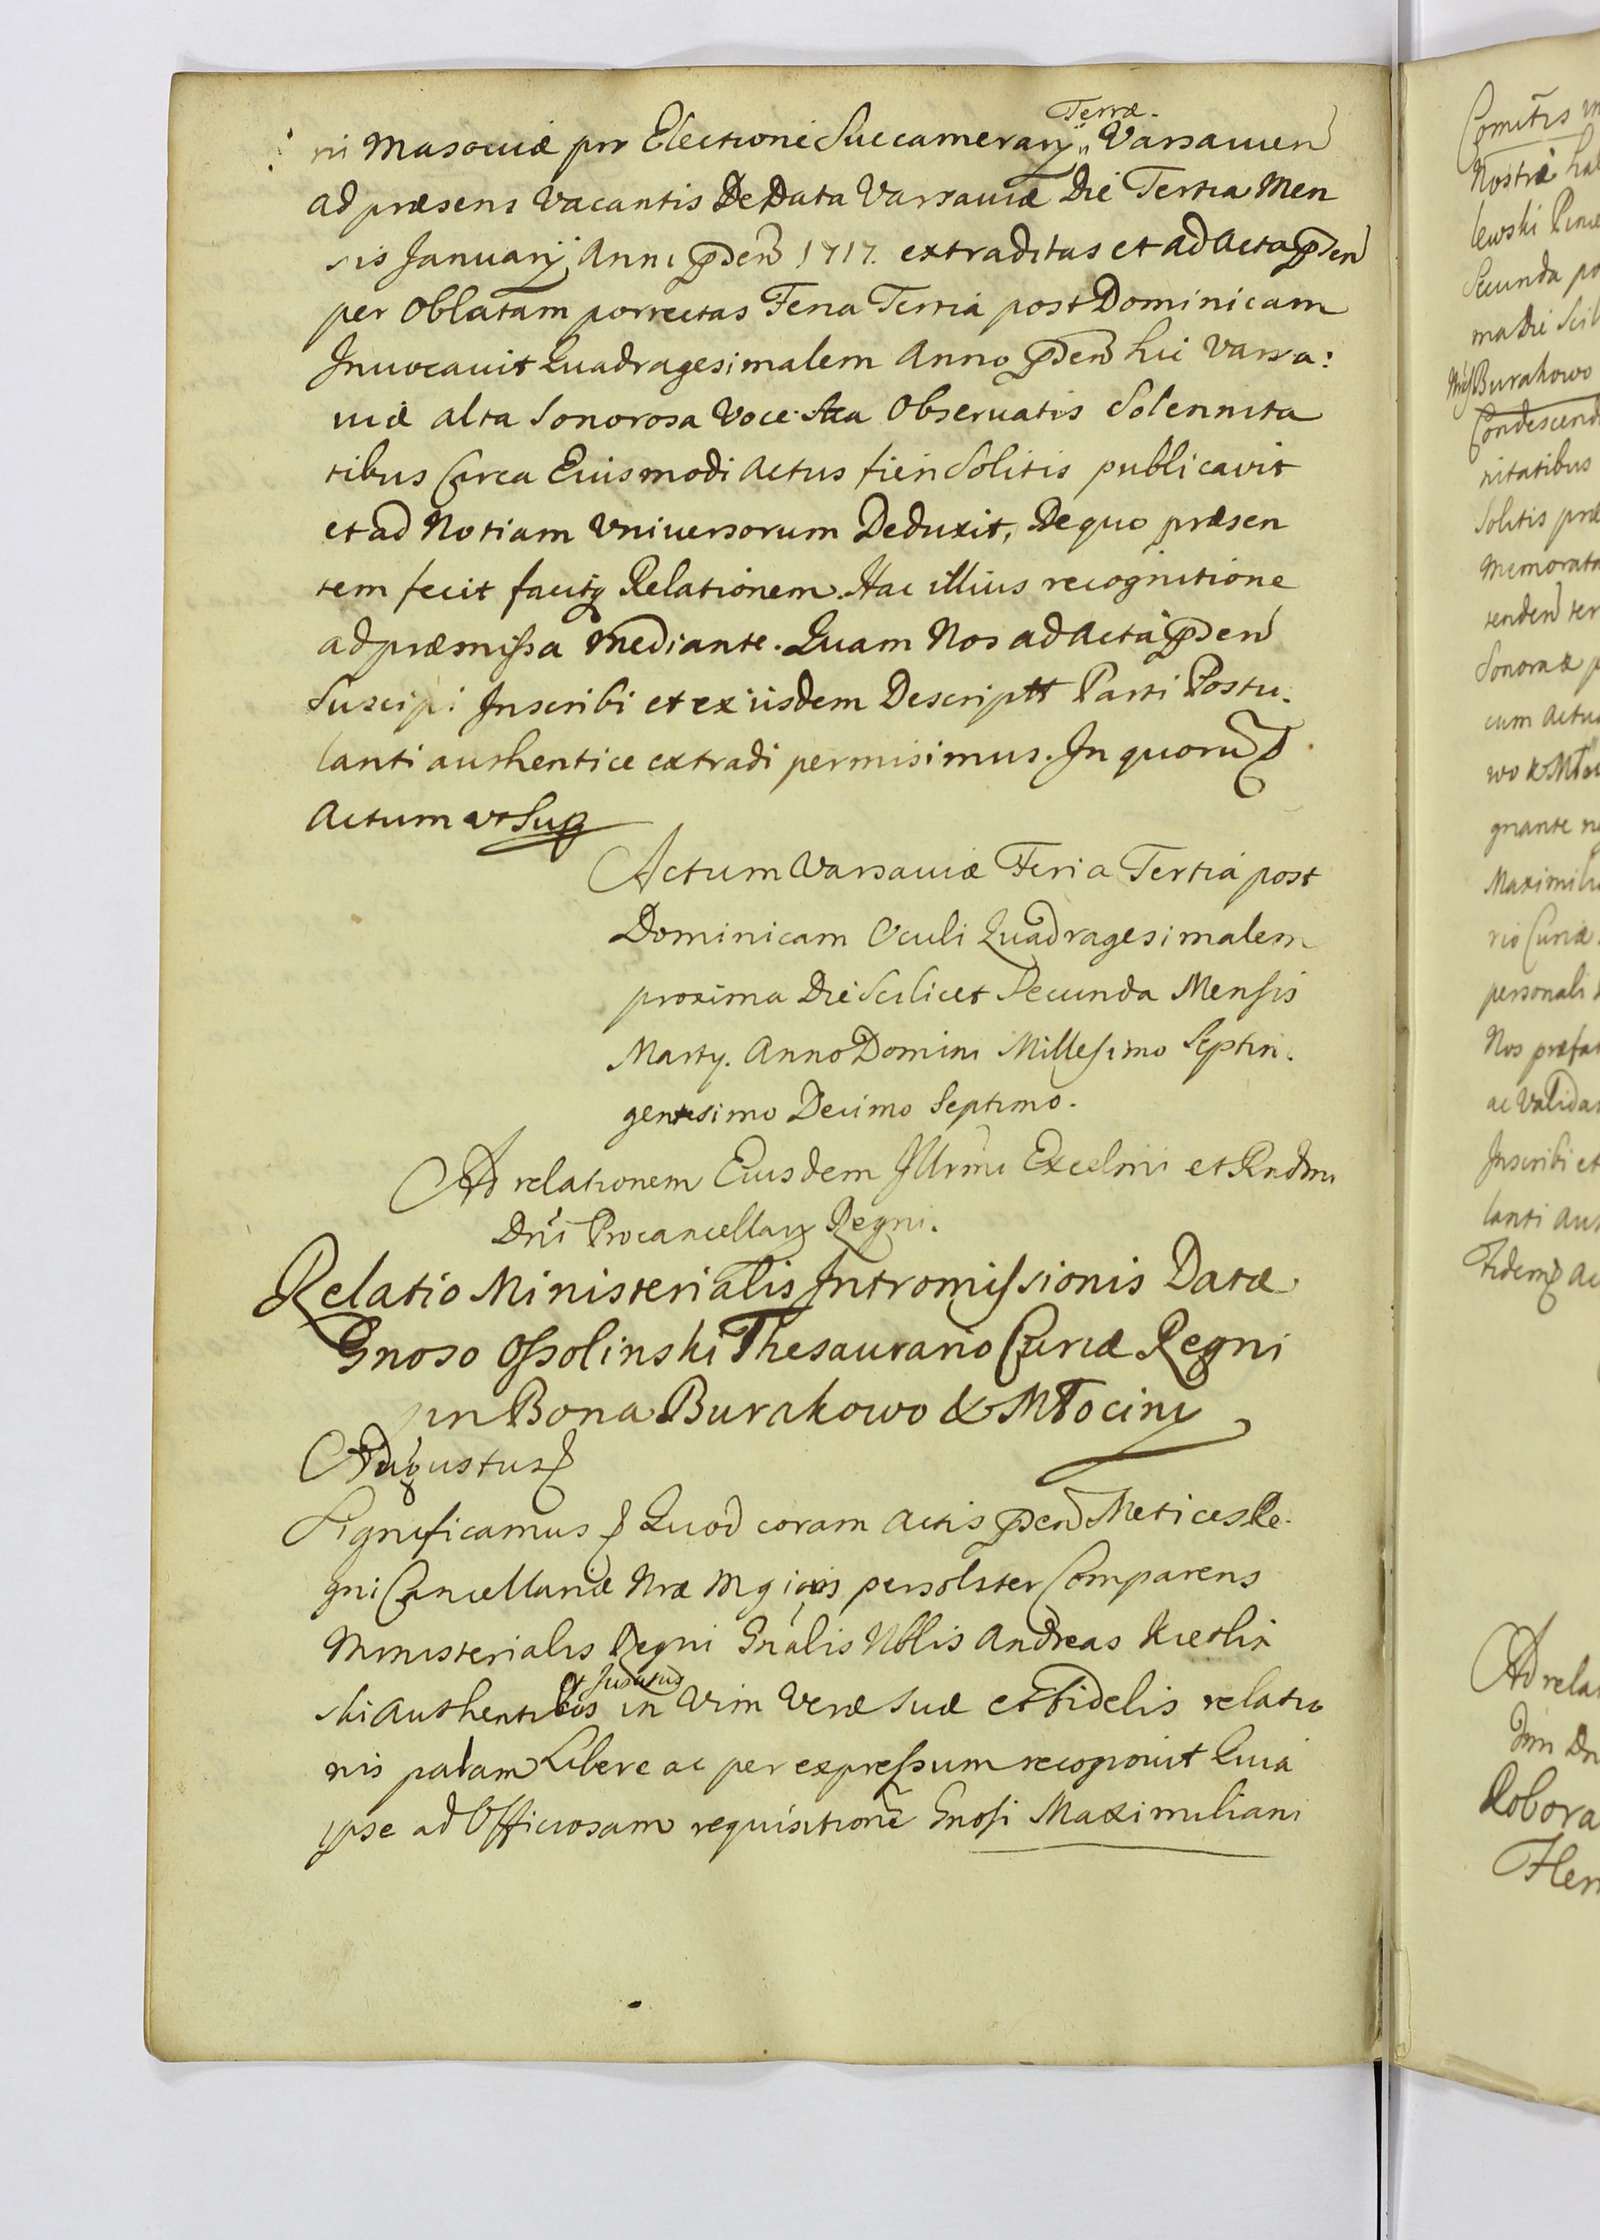 ni Masoviæ pro Electione Succamerarij Terræ Varsavien
ad præsens Vacantis De Data Varsaviæ Die Tertia Men
sis Januarij Anni pden 1717. extraditas et ad Acta pden
per Oblatam porrectas Feria Tertia post Dominicam
Invocavit Quadragesimalem Anno pden hic Varsa:
viæ alta Sonorosa Voce Observatis Solennita
tibus Circa Eiusmodi Actus fieri Solitis publicavit
et ad Notiam Vniversorum Deduxit, De quo præsen
tem fecit facitq Relationem. Hac illius recognitione
ad præmissa Mediante. Quam Nos ad Acta pden
Suscipi Inscribi et ex iisdem Descriptt Parti Postu:
lanti authentice extradi permisimus. In quorū
Actum vt Sup
Actum Varsaviæ Feria Tertia post
Dominicam Oculi Quadragesimalem
proxima Die Scilicet Secunda Mensis
Martij. Anno Domini Millesimo Septin:
gentesimo Decimo Septimo.
Ad relationem Eiusdem Illrmi Excelmi et Rndmi
Dni Procancellarij Regni.
Relatio Ministerialis Intromissionis Datæ
Gnoso Ossolinski Thesaurario Curiæ Regni
in Bona Burakowo & Młociny
Augustus
Significamus Quod coram Actis pden Metices Re:
gni Cancellariæ Nræ personlster Comparens
Ministerialis Regni Gnalis Nblis Andreas
ski authenticus et Juratus in Vim Veræ Suæ et Fidelis relatio
nis palam Libere ac per expressum recognovit Quia
ipse ad Officiosam requisitionē Gnosi Maximiliani
Comitis
Nostræ
lewski
Secunda
ma die
Burakowo
nitatibus
Solitis
tenden
cum
gnante
rio Curiæ
personali
Inscribi et
lanti
Ad